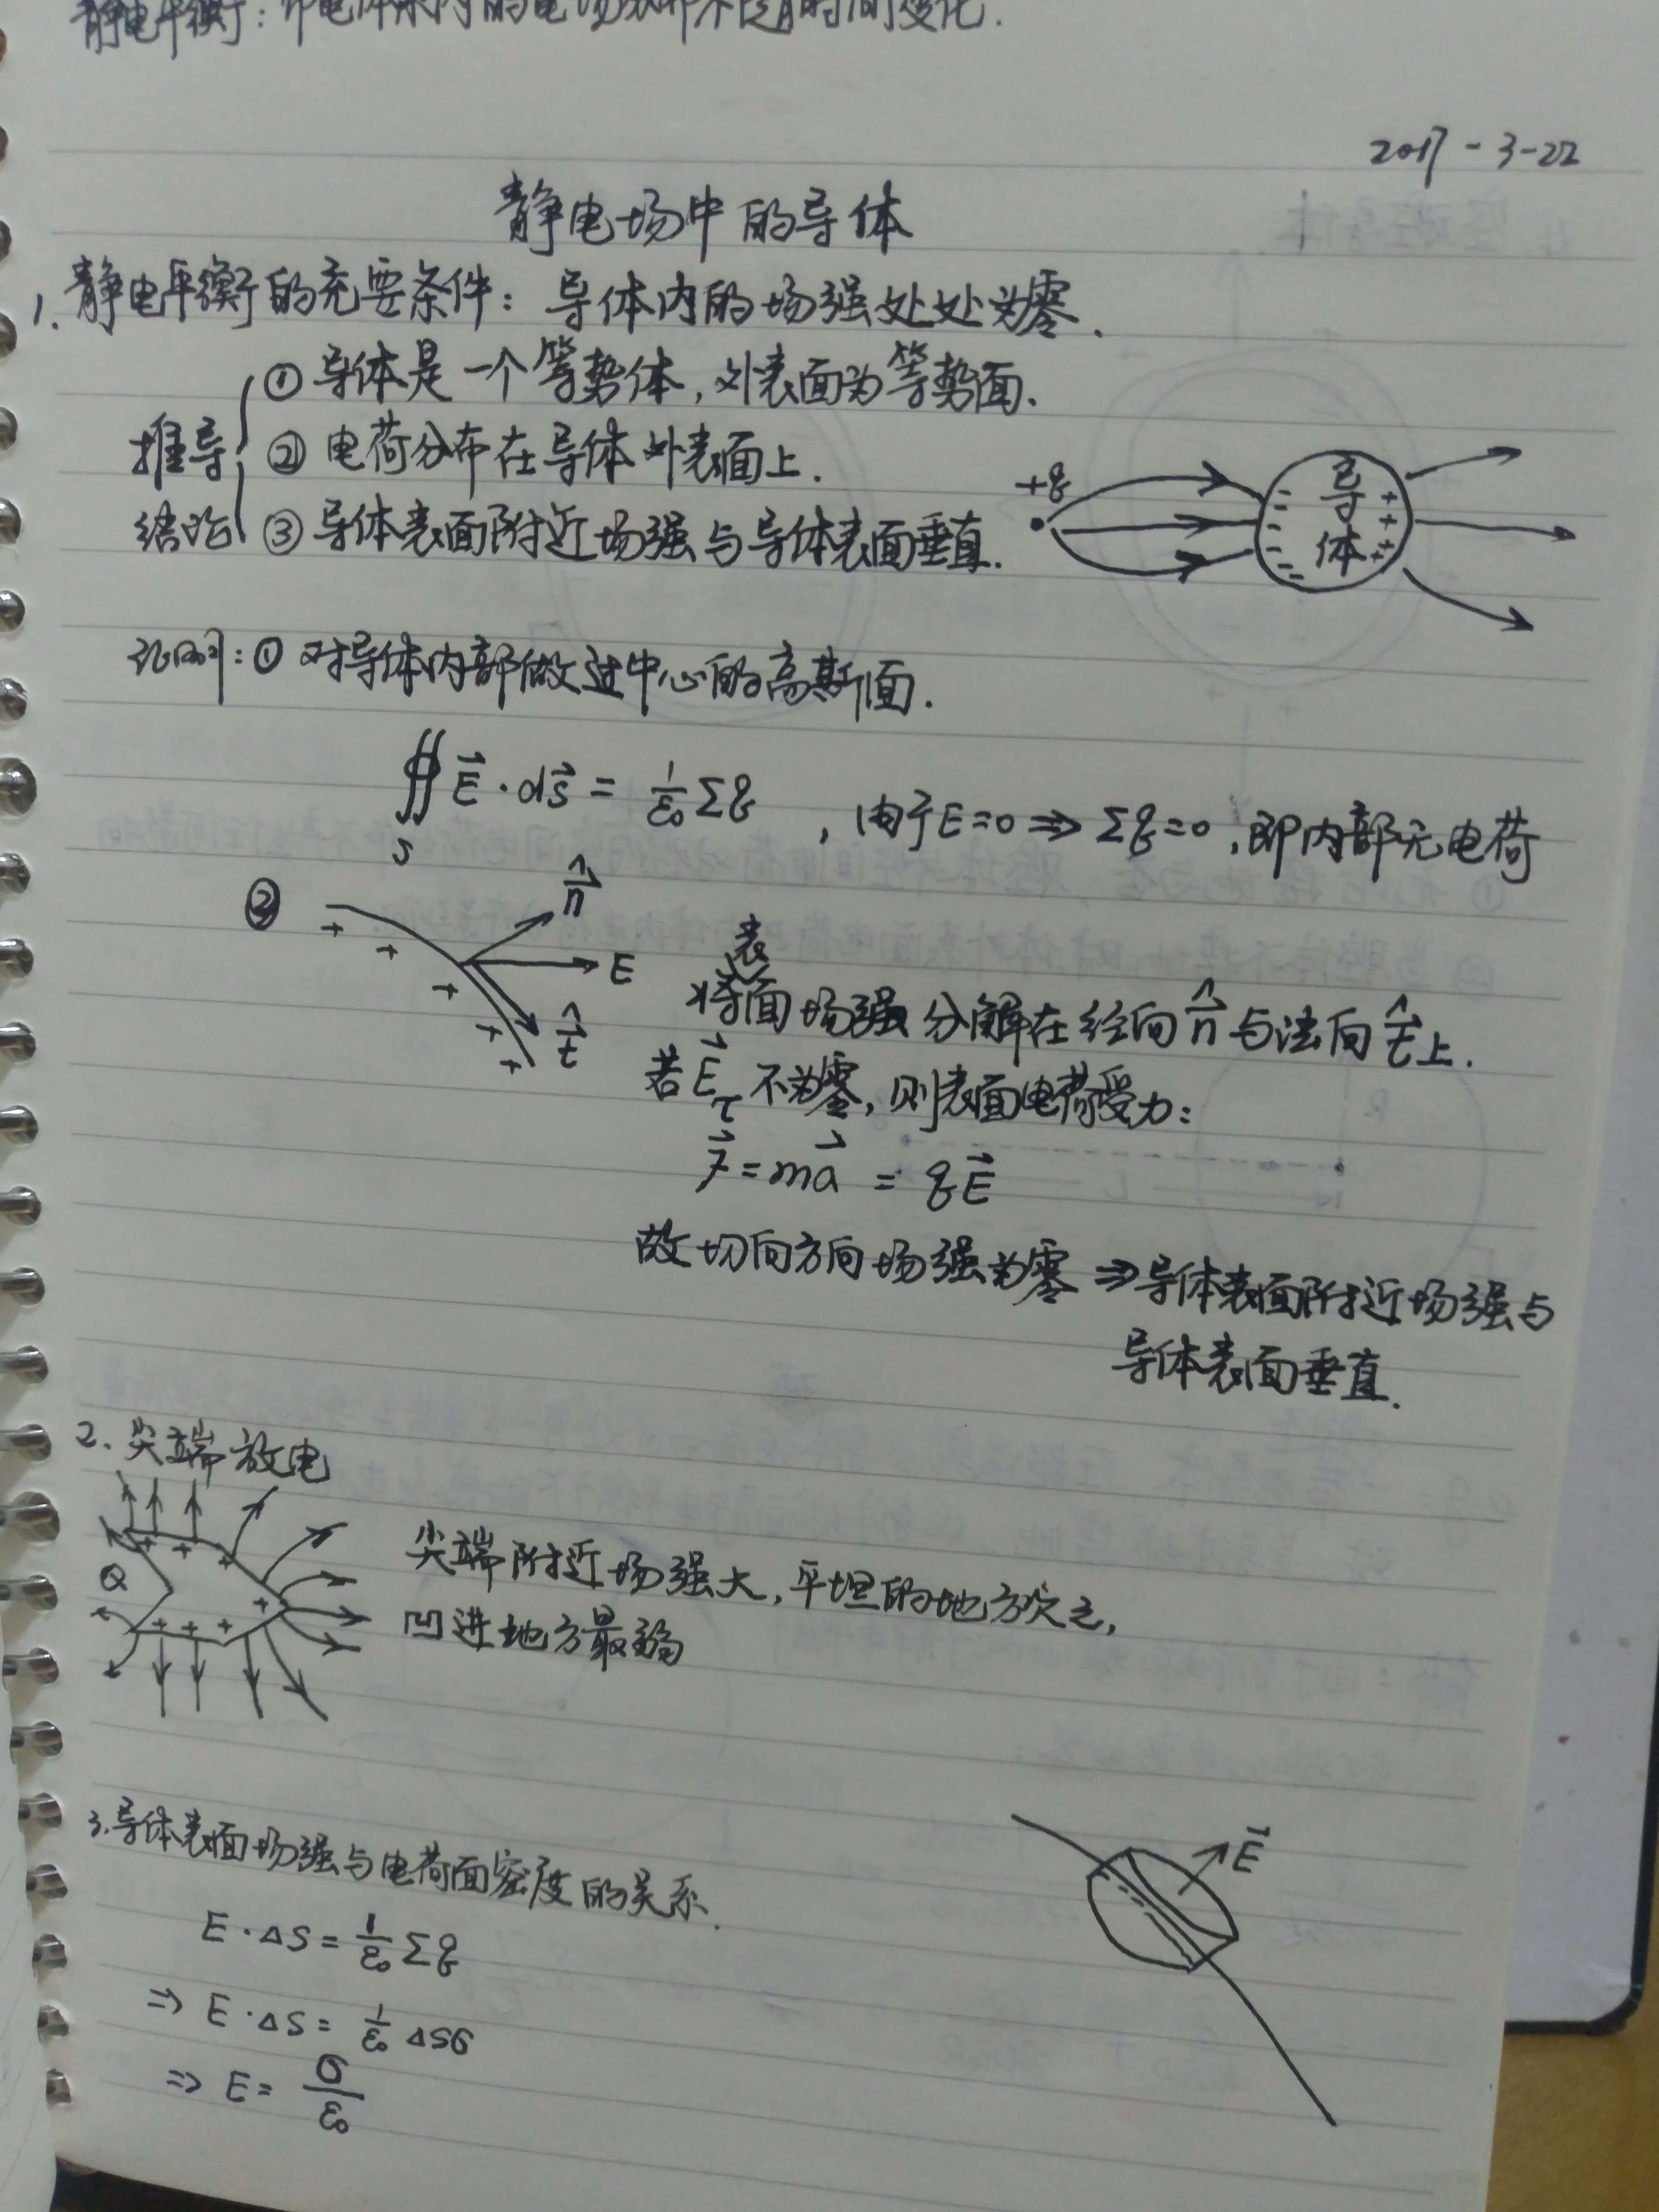 静电平衡：带电体系内的电场分布不随时间变化.
2017-3-22
静电场中的导体
1. 静电平衡的充要条件：导体内的场强处处为零.
① 导体是一个等势体，外表面为等势面.
推导 ② 电荷分布在导体外表面上.
结论 ③ 导体表面附近场强与导体表面垂直.
+q
导
体
证明：① 对导体内部做过中心的高斯面.
∯_S E⃗·dS⃗ = 1/ε₀ Σq ，由于E=0 ⇒ Σq=0，即内部无电荷
② n̂ E t̂
将表面场强分解在径向n̂与法向t̂上.
若E⃗_τ不为零，则表面电荷受力：
F⃗ = ma⃗ = qE⃗
故切向方向场强为零 ⇒ 导体表面附近场强与
导体表面垂直.
2. 尖端放电
Q
尖端附近场强大，平坦的地方次之，
凹进地方最弱
3. 导体表面场强与电荷面密度的关系.
E⃗
E·ΔS = 1/ε₀ Σq
⇒ E·ΔS = 1/ε₀ ΔSσ
⇒ E = σ/ε₀